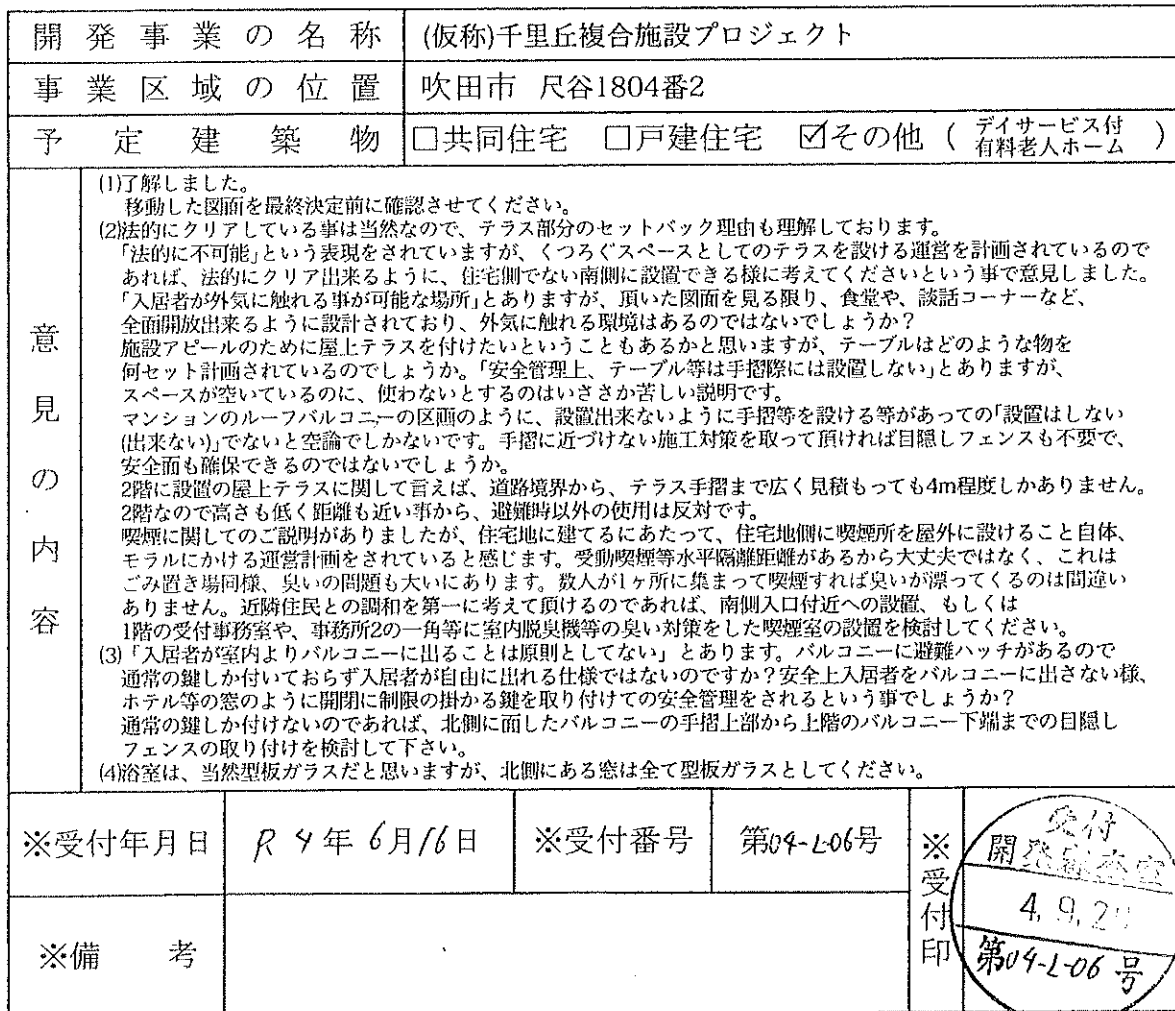 開発事業の名称 (仮称)千里丘複合施設プロジェクト
事業区域の位置 吹田市 尺谷1804番2
予定建築物 □共同住宅 □戸建住宅 ☑その他 ( デイサービス付 有料老人ホーム )
意見の内容
(1)了解しました。
移動した図面を最終決定前に確認させてください。
(2)法的にクリアしている事は当然なので、テラス部分のセットバック理由も理解しております。
「法的に不可能」という表現をされていますが、くつろぐスペースとしてのテラスを設ける運営を計画されているので
あれば、法的にクリア出来るように、住宅側でない南側に設置できる様に考えてくださいという事で意見しました。
「入居者が外気に触れる事が可能な場所」とありますが、頂いた図面を見る限り、食堂や、談話コーナーなど、
全面開放出来るように設計されており、外気に触れる環境はあるのではないでしょうか?
施設アピールのために屋上テラスを付けたいということもあるかと思いますが、テーブルはどのような物を
何セット計画されているのでしょうか。「安全管理上、テーブル等は手摺際には設置しない」とありますが、
スペースが空いているのに、使わないとするのはいささか苦しい説明です。
マンションのルーフバルコニーの区画のように、設置出来ないように手摺等を設ける等があっての「設置はしない
(出来ない)」でないと空論でしかないです。手摺に近づけない施工対策を取って頂ければ目隠しフェンスも不要で、
安全面も確保できるのではないでしょうか。
2階に設置の屋上テラスに関して言えば、道路境界から、テラス手摺まで広く見積もっても4m程度しかありません。
2階なので高さも低く距離も近い事から、避難時以外の使用は反対です。
喫煙に関してのご説明がありましたが、住宅地に建てるにあたって、住宅地側に喫煙所を屋外に設けること自体、
モラルにかける運営計画をされていると感じます。受動喫煙等水平隔離距離があるから大丈夫ではなく、これは
ごみ置き場同様、臭いの問題も大いにあります。数人が1ヶ所に集まって喫煙すれば臭いが漂ってくるのは間違い
ありません。近隣住民との調和を第一に考えて頂けるのであれば、南側入口付近への設置、もしくは
1階の受付事務室や、事務所2の一角等に室内脱臭機等の臭い対策をした喫煙室の設置を検討してください。
(3)「入居者が室内よりバルコニーに出ることは原則としてない」とあります。バルコニーに避難ハッチがあるので
通常の鍵しか付いておらず入居者が自由に出れる仕様ではないのですか?安全上入居者をバルコニーに出さない様、
ホテル等の窓のように開閉に制限の掛かる鍵を取り付けての安全管理をされるという事でしょうか?
通常の鍵しか付けないのであれば、北側に面したバルコニーの手摺上部から上階のバルコニー下端までの目隠し
フェンスの取り付けを検討して下さい。
(4)浴室は、当然型板ガラスだと思いますが、北側にある窓は全て型板ガラスとしてください。
※受付年月日 R4年6月16日 ※受付番号 第04-L-06号 ※受付印
受付
開発審査室
4.9.2
第04-L-06号
※備考